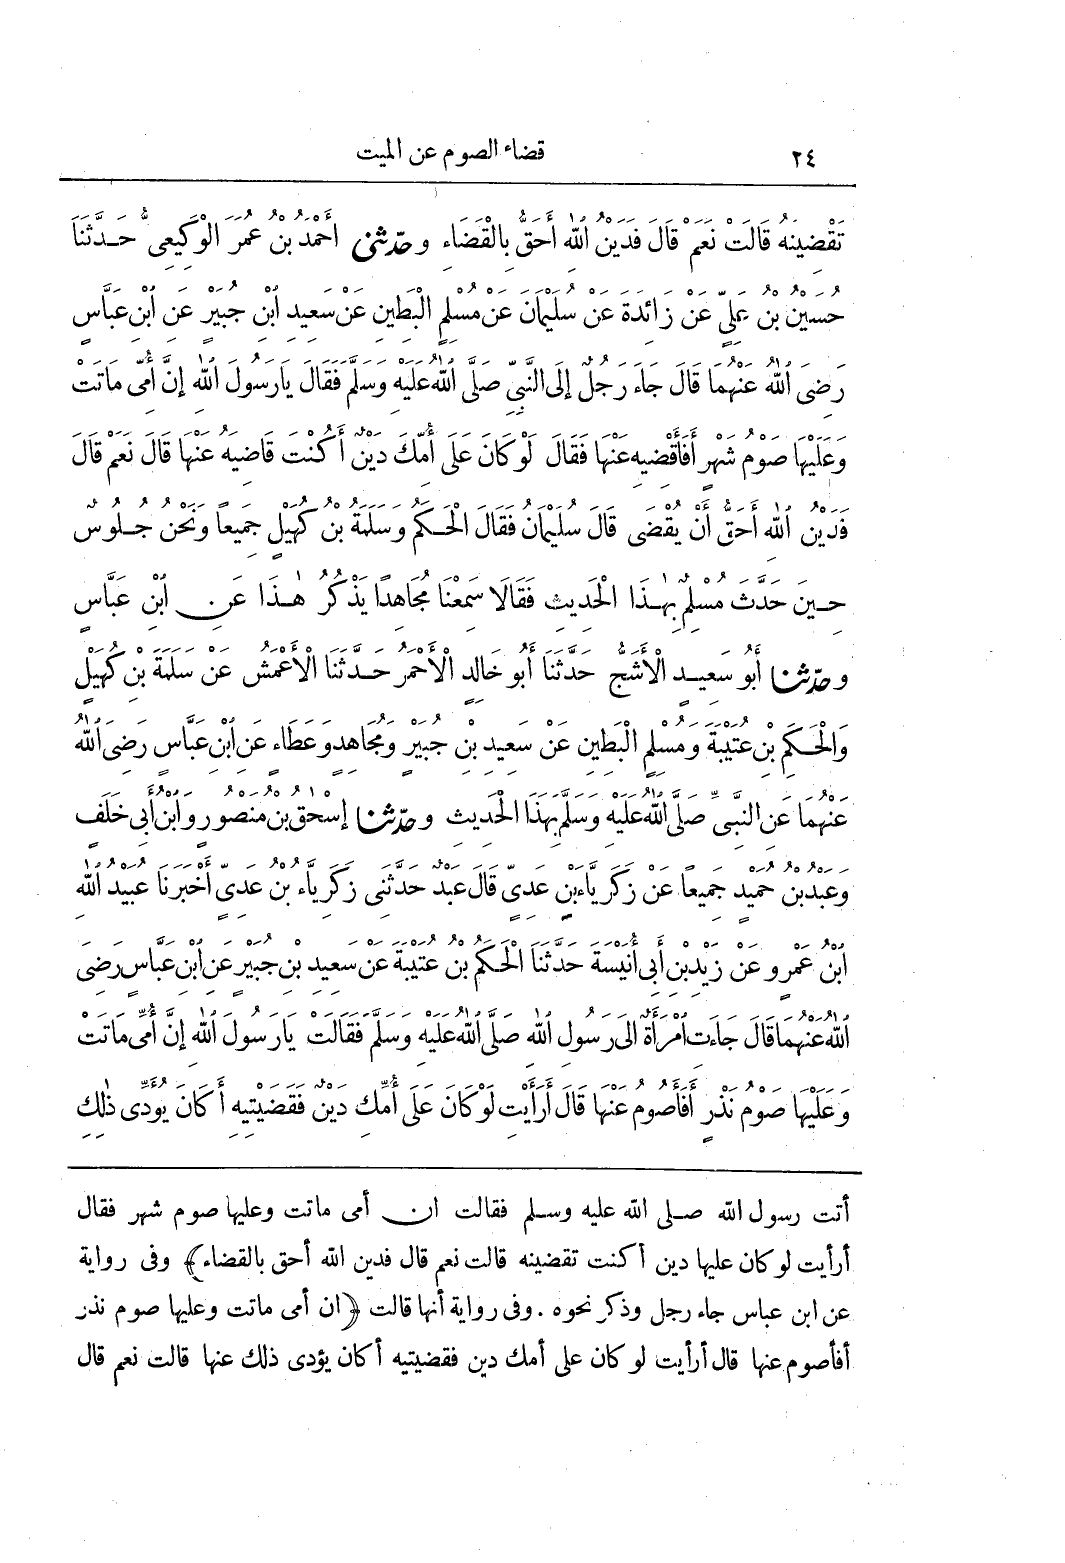 ٢٤ قضاء الصوم عن الميت
تَقْضِينَهُ قَالَتْ نَعَمْ قَالَ فَدَيْنُ اللّٰهِ أَحَقُّ بِالْقَضَاءِ وحدّثنى أَحْمَدُ بْنُ عُمَرَ الْوَكِيعِىُّ حَدَّثَنَا
حُسَيْنُ بْنُ عَلِىٍّ عَنْ زَائِدَةَ عَنْ سُلَيْمَانَ عَنْ مُسْلِمٍ الْبَطِينِ عَنْ سَعِيدِ ابْنِ جُبَيْرٍ عَنِ ابْنِ عَبَّاسٍ
رَضِىَ اللّٰهُ عَنْهُمَا قَالَ جَاءَ رَجُلٌ إِلَى النَّبِىِّ صَلَّى اللّٰهُ عَلَيْهِ وَسَلَّمَ فَقَالَ يَارَسُولَ اللّٰهِ إِنَّ أُمِّى مَاتَتْ
وَعَلَيْهَا صَوْمُ شَهْرٍ أَفَأَقْضِيهِ عَنْهَا فَقَالَ لَوْ كَانَ عَلَى أُمِّكَ دَيْنٌ أَكُنْتَ قَاضِيَهُ عَنْهَا قَالَ نَعَمْ قَالَ
فَدَيْنُ اللّٰهِ أَحَقُّ أَنْ يُقْضَى قَالَ سُلَيْمَانُ فَقَالَ الْحَكَمُ وَسَلَمَةُ بْنُ كُهَيْلٍ جَمِيعًا وَنَحْنُ جُلُوسٌ
حِينَ حَدَّثَ مُسْلِمٌ بِهٰذَا الْحَدِيثِ فَقَالَا سَمِعْنَا مُجَاهِدًا يَذْكُرُ هٰذَا عَنِ ابْنِ عَبَّاسٍ
وحدّثنا أَبُو سَعِيدٍ الْأَشَجُّ حَدَّثَنَا أَبُو خَالِدٍ الْأَحْمَرُ حَدَّثَنَا الْأَعْمَشُ عَنْ سَلَمَةَ بْنِ كُهَيْلٍ
وَالْحَكَمِ بْنِ عُتَيْبَةَ وَمُسْلِمٍ الْبَطِينِ عَنْ سَعِيدِ بْنِ جُبَيْرٍ وَمُجَاهِدٍ وَعَطَاءٍ عَنِ ابْنِ عَبَّاسٍ رَضِىَ اللّٰهُ
عَنْهُمَا عَنِ النَّبِىِّ صَلَّى اللّٰهُ عَلَيْهِ وَسَلَّمَ بِهَذَا الْحَدِيثِ وحدّثنا إِسْحٰقُ بْنُ مَنْصُورٍ وَابْنُ أَبِى خَلَفٍ
وَعَبْدُ بْنُ حُمَيْدٍ جَمِيعًا عَنْ زَكَرِيَّاءَ بْنِ عَدِىٍّ قَالَ عَبْدٌ حَدَّثَنِى زَكَرِيَّاءُ بْنُ عَدِىٍّ أَخْبَرَنَا عُبَيْدُ اللّٰهِ
ابْنُ عَمْرٍو عَنْ زَيْدِ بْنِ أَبِى أُنَيْسَةَ حَدَّثَنَا الْحَكَمُ بْنُ عُتَيْبَةَ عَنْ سَعِيدِ بْنِ جُبَيْرٍ عَنِ ابْنِ عَبَّاسٍ رَضِىَ
اللّٰهُ عَنْهُمَا قَالَ جَاءَتِ امْرَأَةٌ إِلَى رَسُولِ اللّٰهِ صَلَّى اللّٰهُ عَلَيْهِ وَسَلَّمَ فَقَالَتْ يَارَسُولَ اللّٰهِ إِنَّ أُمِّى مَاتَتْ
وَعَلَيْهَا صَوْمُ نَذْرٍ أَفَأَصُومُ عَنْهَا قَالَ أَرَأَيْتِ لَوْ كَانَ عَلَى أُمِّكِ دَيْنٌ فَقَضَيْتِيهِ أَكَانَ يُؤَدِّى ذٰلِكِ
أتت رسول الله صلى الله عليه وسلم فقالت ان أمى ماتت وعليها صوم شهر فقال
أرأيت لو كان عليها دين أكنت تقضينه قالت نعم قال فدين الله أحق بالقضاء﴾ وفى رواية
عن ابن عباس جاء رجل وذكر نحوه . وفى رواية أنها قالت ﴿ان أمى ماتت وعليها صوم نذر
أفأصوم عنها قال أرأيت لو كان على أمك دين فقضيتيه أكان يؤدى ذلك عنها قالت نعم قال